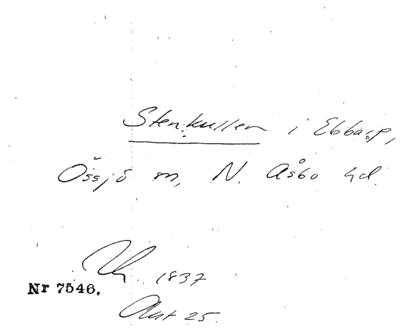 Stenkullen i Ebbarp,
Össjö sn, N. Åsbo hd.
1837
Nr 7546.
Akt 25.